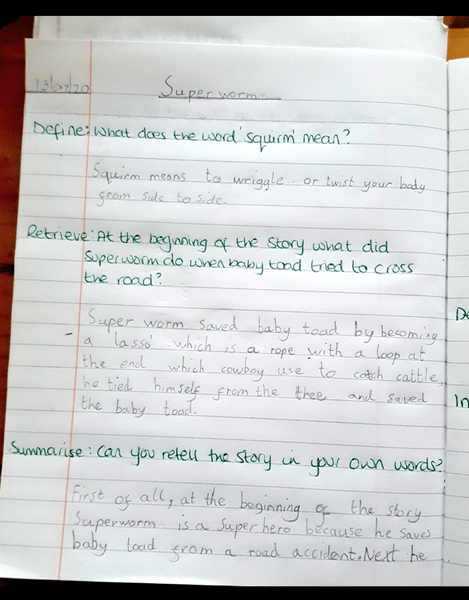 13/07/20
Superworm
Define: What does the word 'squirm' mean?
Squirm means to wriggle or twist your body
from side to side.
Retrieve: At the beginning of the story what did
Superworm do when baby toad tried to cross
the road?
Super worm saved baby toad by becoming
a lasso which is a rope with a loop at
the end which cowboy use to catch cattle,
he tied himself from the thee and saved
the baby toad.
Summarise: Can you retell the story in your own words?
First of all, at the beginning of the story
Superworm is a Superhero because he saves
baby toad from a road accident. Next he
De
In